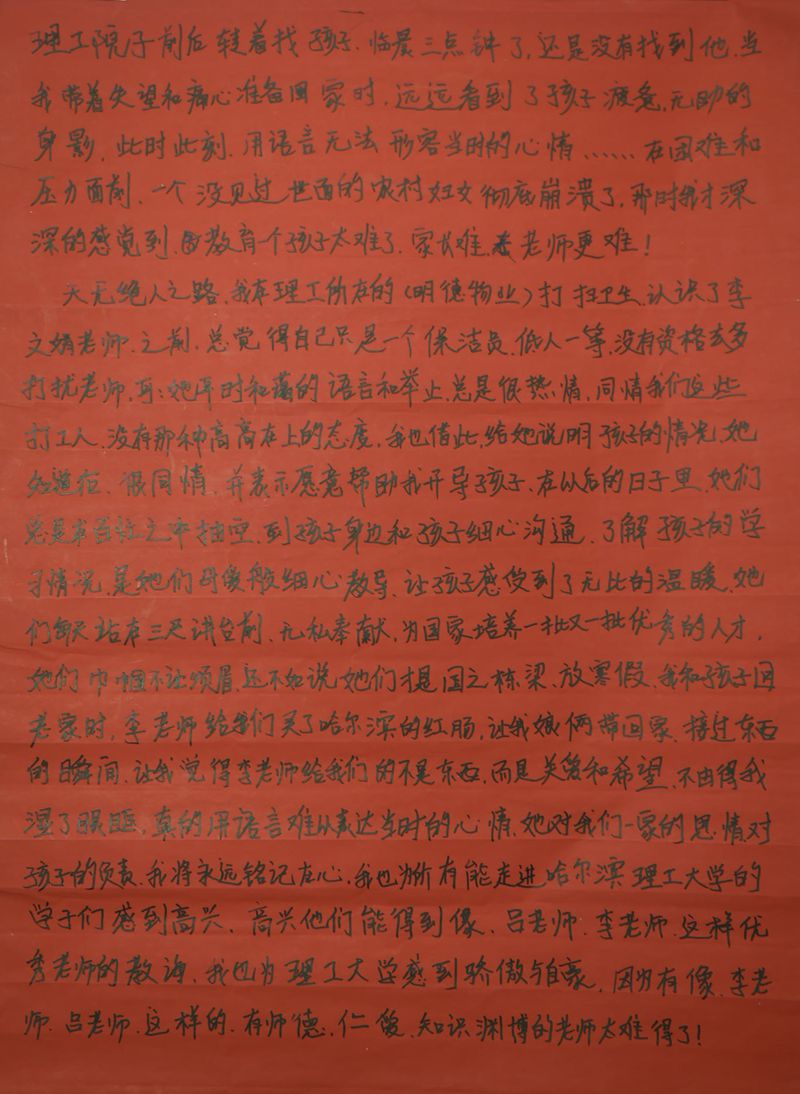 理工院子前后转着找孩子.临晨三点钟了,还是没有找到他.当
我带着失望和痛心准备回家时,远远看到了孩子疲惫,无助的
身影,此时此刻.用语言无法形容当时的心情……在困难和
压力面前.一个没见过世面的农村妇女彻底崩溃了,那时我才深
深的感觉到.教育一个孩子太难了.家长难,老师更难!
天无绝人之路,我在理工所在的(明德物业)打扫卫生,认识了李
文娟老师.之前.总觉得自己只是一个保洁员.低人一等,没有资格去多
打扰老师,可她平时和蔼的语言和举止.总是很热情,同情我们这些
打工人.没有那种高高在上的态度,我也借此,给她说明孩子的情况,她
知道后.很同情,并表示愿意帮助我开导孩子.在以后的日子里.她们
总是在百忙之中抽空.到孩子身边和孩子细心沟通.了解孩子的学
习情况,是她们母爱般细心教导.让孩子感受到了无比的温暖.她
们每天站在三尺讲台前.无私奉献,为国家培养一批又一批优秀的人才,
她们巾帼不让须眉,还不如说她们才是国之栋梁.放寒假.我和孩子回
老家时,李老师给我们买了哈尔滨的红肠,让我娘俩带回家.接过东西
的瞬间.让我觉得李老师给我们的不是东西.而是关爱和希望.不由得我
湿了眼眶,真的用语言难以表达当时的心情.她对我们一家的恩情对
孩子的负责.我将永远铭记在心.我也为所有能走进哈尔滨理工大学的
学子们感到高兴.高兴他们能得到像.吕老师.李老师.这样优
秀老师的教诲,我也为理工大学感到骄傲与自豪,因为有像.李老
师.吕老师.这样的.有师德,仁爱,知识渊博的老师太难得了!